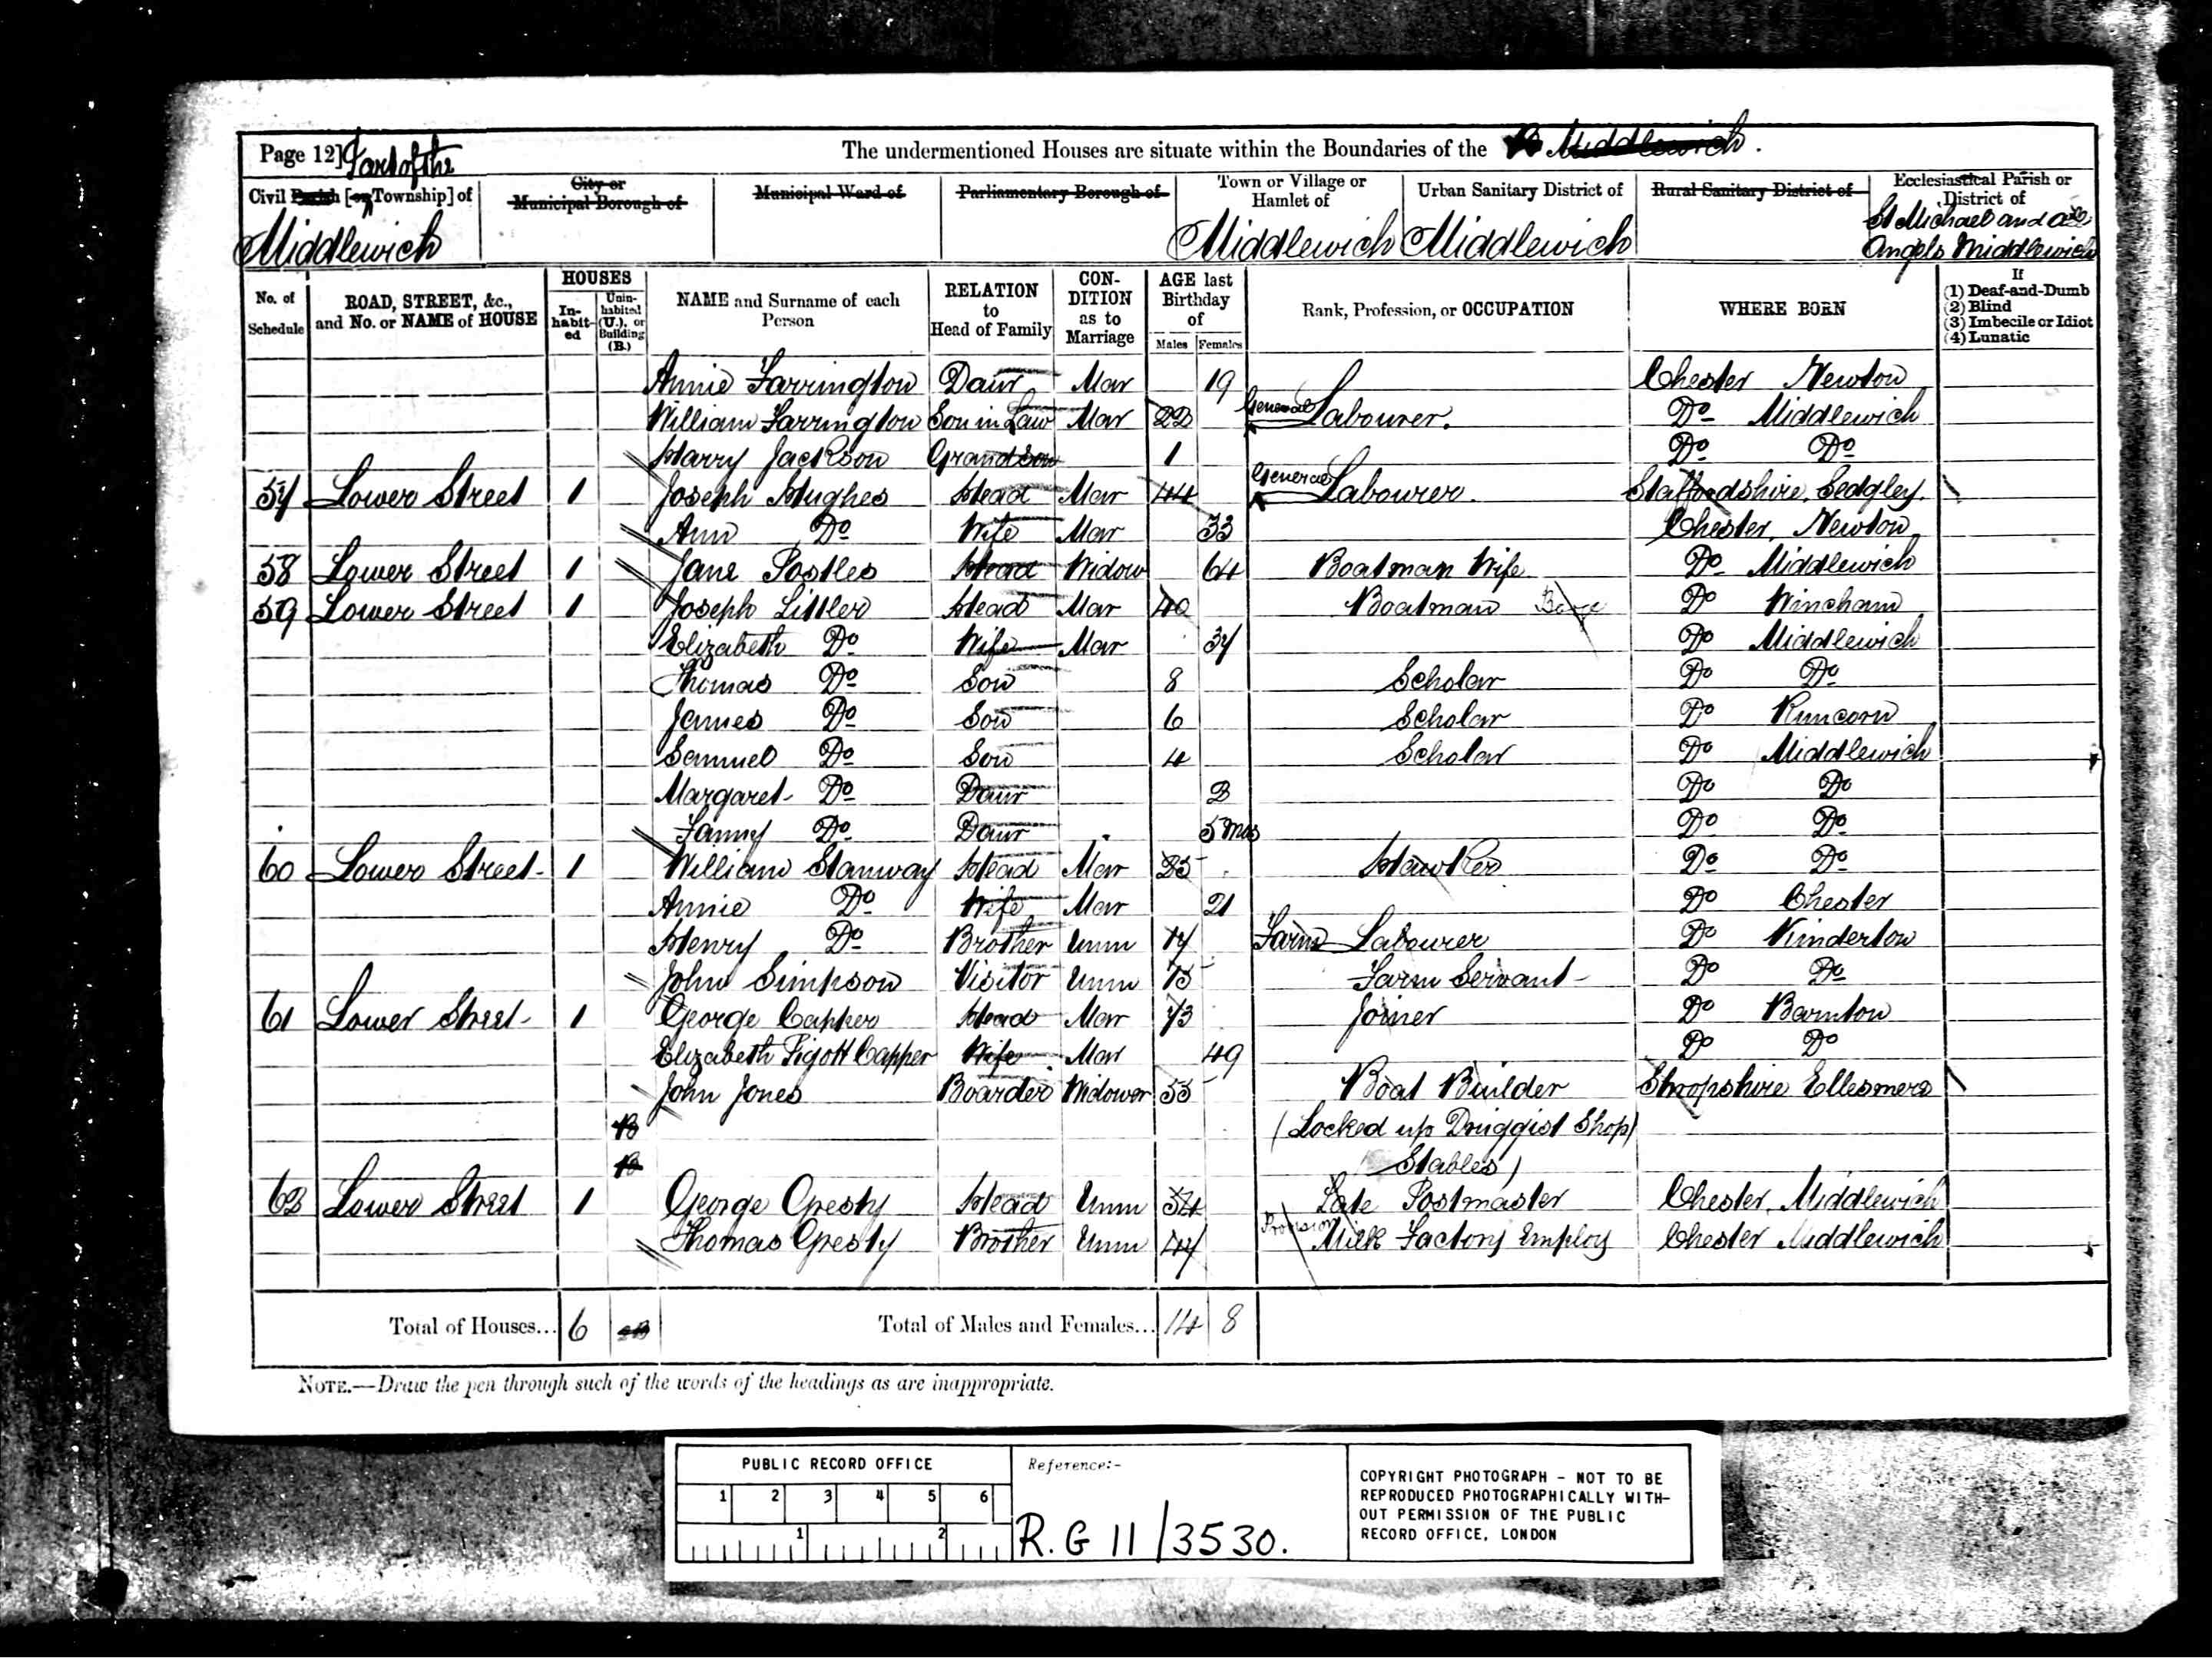 Page 12] Part of the
The undermentioned Houses are situate within the Boundaries of the Middlewich.
Civil Parish [or Township] of
City or Municipal Borough of
Municipal Ward of
Parliamentary Borough of
Town or Village or Hamlet of
Urban Sanitary District of
Rural Sanitary District of
Ecclesiastical Parish or District of
Middlewich Middlewich Middlewich St Michael and all Angels Middlewich
No. of Schedule
ROAD, STREET, &c., and No. or NAME of HOUSE
HOUSES
In-habit-ed
Unin-habited (U.), or Building (B.)
NAME and Surname of each Person
RELATION to Head of Family
CON-DITION as to Marriage
AGE last Birthday of
Males Females
Rank, Profession, or OCCUPATION
WHERE BORN
If
(1) Deaf-and-Dumb
(2) Blind
(3) Imbecile or Idiot
(4) Lunatic
Annie Farrington Daur Mar 19 Chester Newton
William Farrington Son in Law Mar 22 General Labourer. Do Middlewich
Harry Jackson Grandson 1 Do Do
57 Lower Street 1 Joseph Hughes Head Mar 44 General Labourer. Staffordshire, Sedgley.
Ann Do Wife Mar 33 Chester, Newton
58 Lower Street 1 Jane Postles Head Widow 64 Boatman Wife Do Middlewich
59 Lower Street 1 Joseph Littler Head Mar 40 Boatman Barge Do Wincham
Elizabeth Do Wife Mar 37 Do Middlewich
Thomas Do Son 8 Scholar Do Do
James Do Son 6 Scholar Do Runcorn
Samuel Do Son 4 Scholar Do Middlewich
Margaret Do Daur 2 Do Do
Fanny Do Daur 5 Mos Do Do
60 Lower Street 1 William Stanway Head Mar 25 Hawker Do Do
Annie Do Wife Mar 21 Do Chester
Henry Do Brother Unm 17 Farm Labourer Do Kinderton
John Simpson Visitor Unm 15 Farm Servant Do Do
61 Lower Street 1 George Capper Head Mar 73 Joiner Do Barnton
Elizabeth Pigott Capper Wife Mar 49 Do Do
John Jones Boarder Widower 55 Boat Builder Shropshire Ellesmere
B (Locked up Druggist Shop)
B Stables)
62 Lower Street 1 George Cresty Head Unm 54 Late Postmaster Chester, Middlewich
Thomas Cresty Brother Unm 47 Provision Milk Factory Employ Chester Middlewich
Total of Houses... 6 2B Total of Males and Females... 14 8
NOTE.—Draw the pen through such of the words of the headings as are inappropriate.
PUBLIC RECORD OFFICE
1 2 3 4 5 6
1 2
Reference:-
R.G 11/3530.
COPYRIGHT PHOTOGRAPH - NOT TO BE
REPRODUCED PHOTOGRAPHICALLY WITH-
OUT PERMISSION OF THE PUBLIC
RECORD OFFICE, LONDON